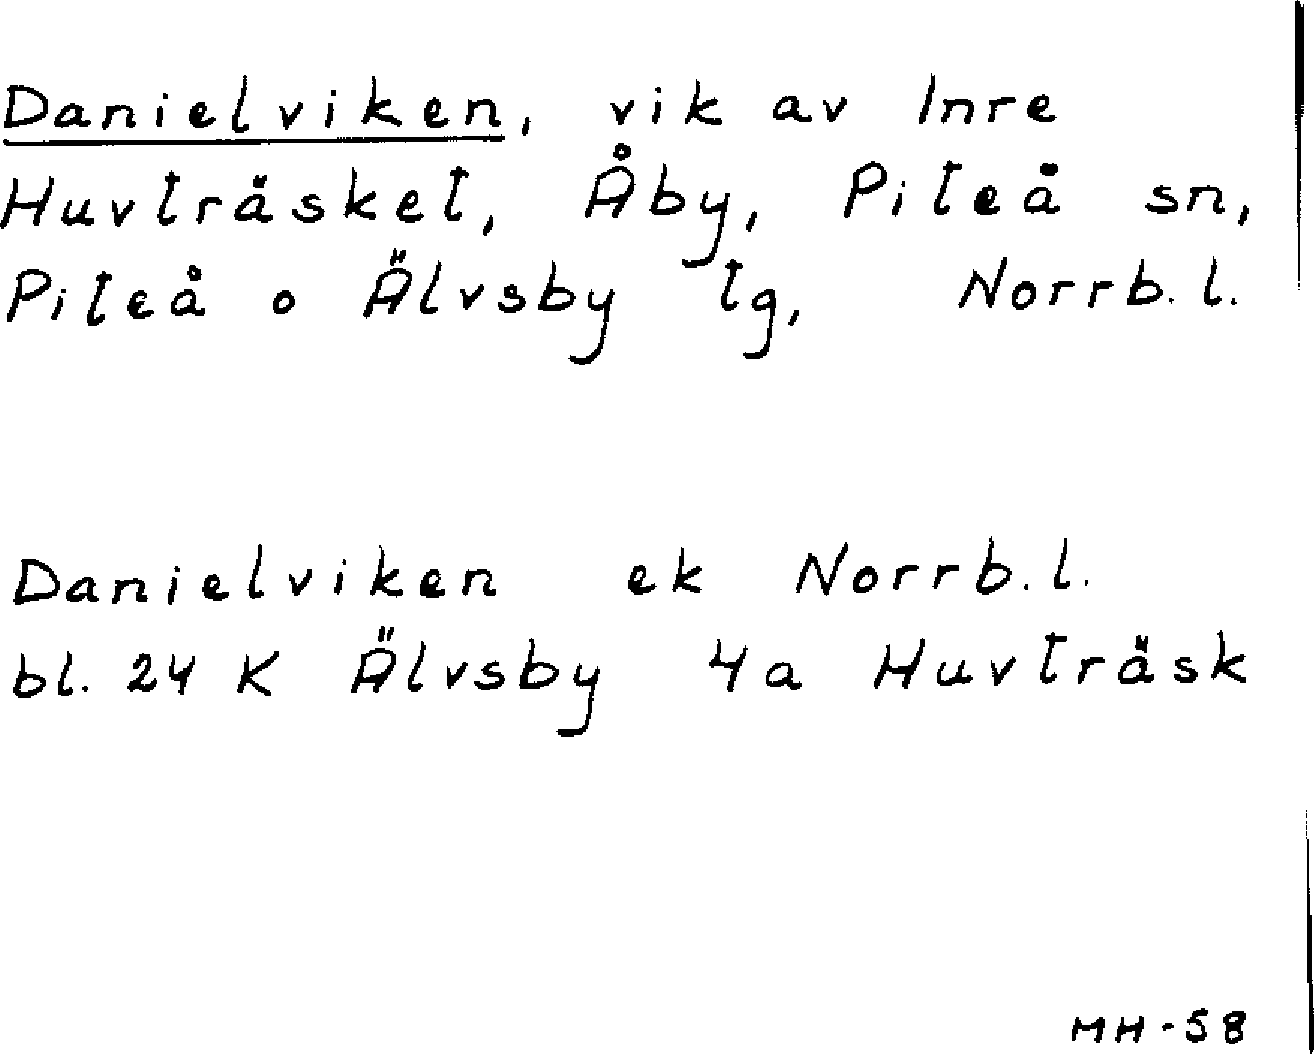 Danielviken, vik av Inre
Huvträsket, Åby, Piteå sn,
Piteå o Älvsby tg, Norrb. l.
Danielviken ek Norrb. l.
bl. 24 K Älvsby 4a Huvträsk
MH-58